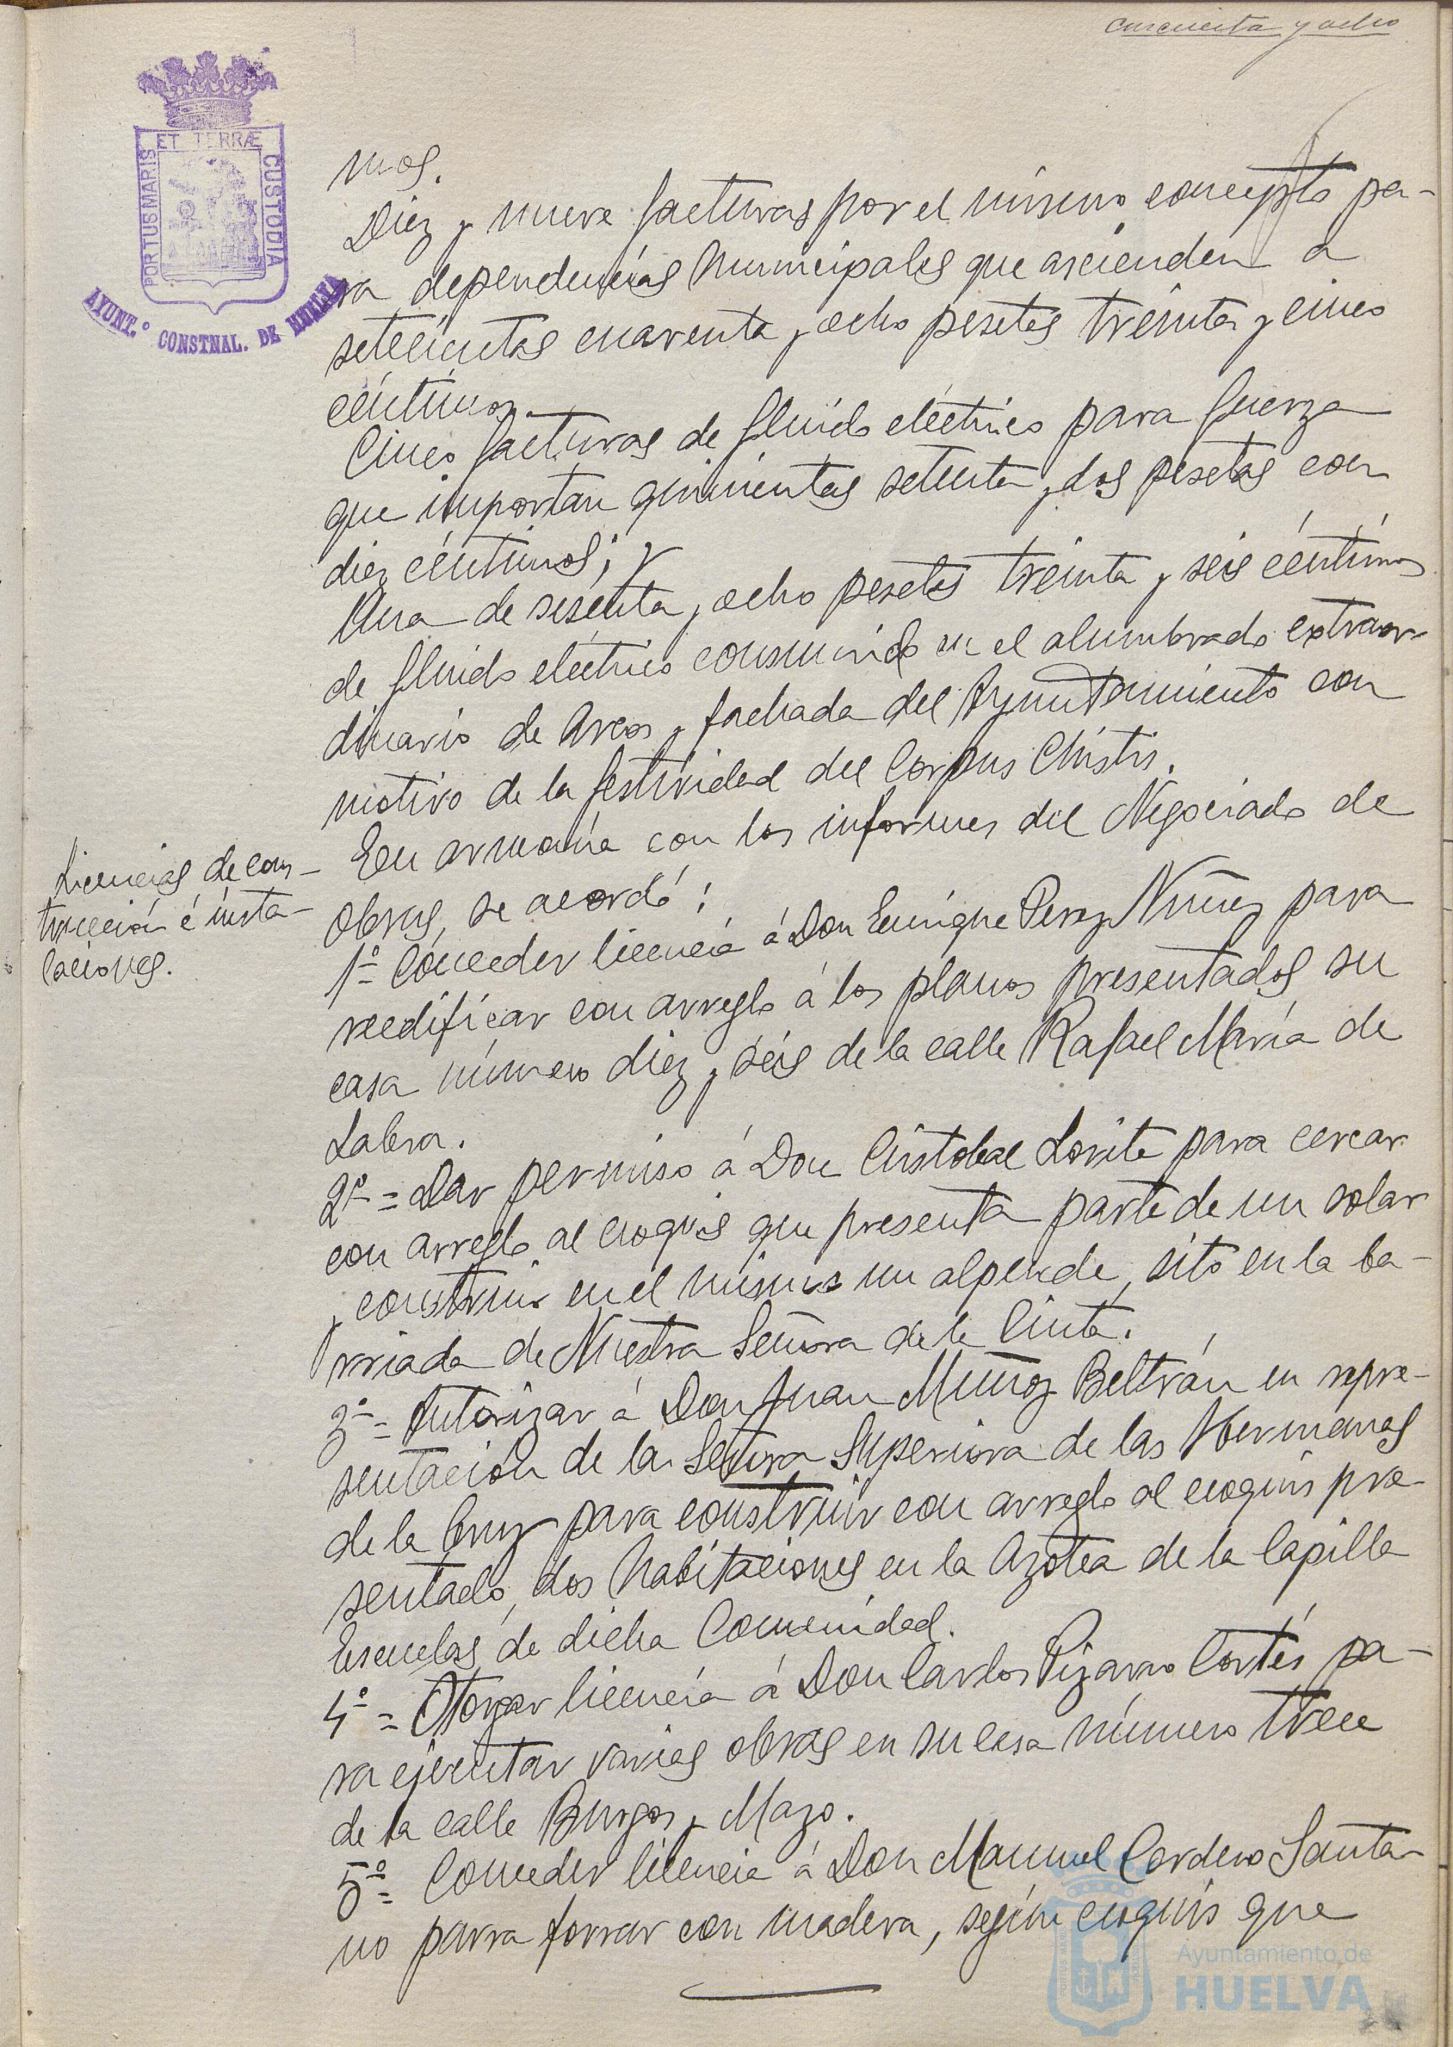 cincuenta y ocho
PORTUS MARIS ET TERRÆ CUSTODIA
AYUNT.º CONSTNAL. DE HUELVA
mos.
Diez y nueve facturas por el mismo concepto pa-
ra dependencias Municipales que ascienden a
setecientas cuarenta y ocho pesetas treinta y cinco
céntimos.
Cinco facturas de fluido eléctrico para fuerza
que importan quinientas setenta y dos pesetas con
diez céntimos; y
Una de sesenta y ocho pesetas treinta y seis céntimos
de fluido eléctrico consumido en el alumbrado extraor-
dinario de Arcos y fachada del Ayuntamiento con
motivo de la festividad del Corpus Christis.
Licencias de cons-
trucción é insta-
laciones.
En armonía con los informes del Negociado de
Obras, se acordó:
1º Conceder licencia á Don Enrique Perez Nuñez para
reedificar con arreglo á los planos presentados su
casa número diez y séis de la calle Rafael María de
Labra.
2º = Dar permiso á Don Cristobal Lorite para cercar
con arreglo al croquis que presenta parte de un solar
y construir en el mismo un alpende, sito en la ba-
rriada de Nuestra Señora de la Cinta.
3º = Autorizar á Don Juan Muñoz Beltrán en repre-
sentación de la Señora Superiora de las Hermanas
de la Cruz para construir con arreglo al croquis pre-
sentado, dos habitaciones en la Azotea de la Capilla
Escuelas de dicha Comunidad.
4º = Otorgar licencia á Don Carlos Pizarro Cortés pa-
ra ejecutar varias obras en su casa número trece
de la calle Burgos y Mazo.
5º = Conceder licencia á Don Manuel Cordero Santa-
no parra forrar con madera, según croquis que
Ayuntamiento de
HUELVA